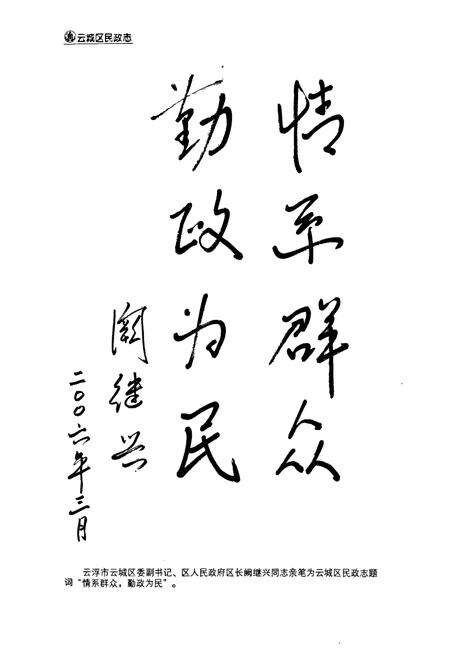 云城区民政志
情系群众
勤政为民
阙继兴
二〇〇六年三月
云浮市云城区委副书记、区人民政府区长阙继兴同志亲笔为云城区民政志题
词“情系群众，勤政为民”。